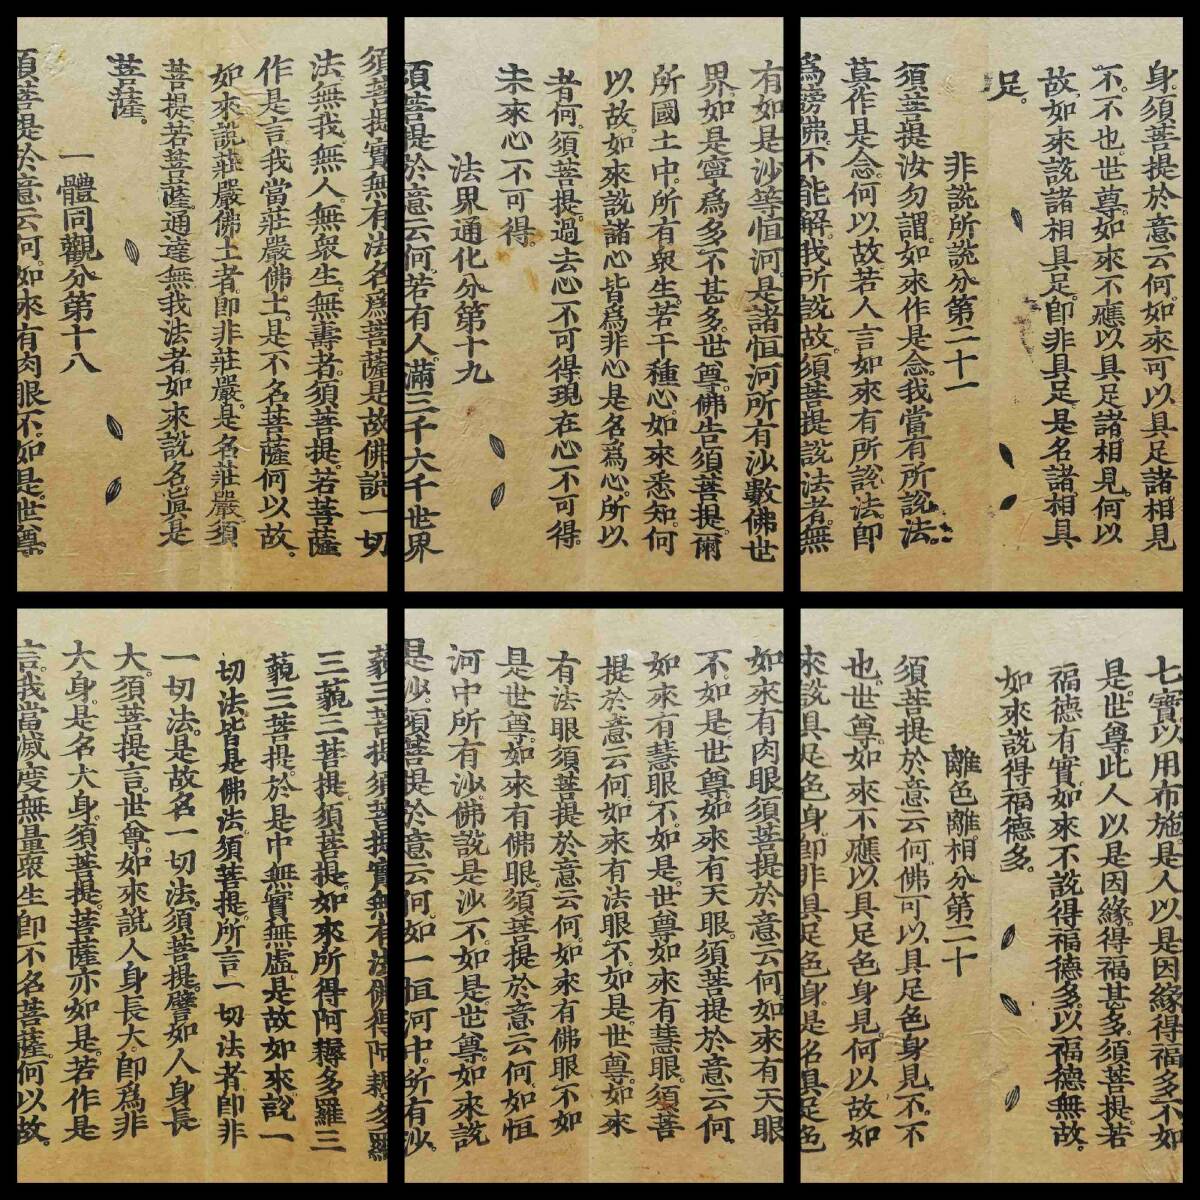 須菩提實無有法名爲菩薩是故佛說一切
法無我無人。無衆生。無壽者。須菩提。若菩薩
作是言我當莊嚴佛土。是不名菩薩何以故。
如來說莊嚴佛土者。卽非莊嚴。是名莊嚴。須
菩提若菩薩。通達無我法者如來說名眞是
菩薩。
一體同觀分第十八
須菩提於意云何。如來有肉眼不。如是。世尊。
有如是沙等恒河。是諸恒河所有沙數佛世
界如是寧爲多。不甚多。世尊。佛告須菩提。爾
所國土中所有衆生。若干種心。如來悉知。何
以故。如來說諸心皆爲非心是名爲心。所以
者何。須菩提。過去心不可得。現在心不可得。
未來心不可得。
法界通化分第十九
須菩提於意云何。若有人。滿三千大千世界
身。須菩提於意云何。如來可以具足諸相見
不。不也世尊如來不應以具足諸相見。何以
故如來說諸相具足。卽非具足是名諸相具
足。
非說所說分第二十一
須菩提汝勿謂。如來作是念。我當有所說法。
莫作是念。何以故若人言如來有所說法。卽
爲謗佛。不能解我所說故。須菩提說法者。無
藐三菩提須菩提實無有法佛得阿耨多羅
三藐三菩提。須菩提。如來所得阿耨多羅三
藐三菩提於是中無實無虛。是故如來說一
切法皆是佛法須菩提所言一切法者卽非
一切法。是故名一切法。須菩提。譬如人身長
大。須菩提言。世尊。如來說人身長大。卽爲非
大身。是名大身。須菩提。菩薩亦如是。若作是
言。我當滅度無量衆生卽不名菩薩。何以故。
如來有肉眼須菩提於意云何如來有天眼
不。如是世尊如來有天眼須菩提於意云何
如來有慧眼不。如是。世尊如來有慧眼須菩
提於意云何。如來有法眼不如是。世尊。如來
有法眼須菩提於意云何。如來有佛眼不如
是世尊。如來有佛眼。須菩提於意云何如恒
河中所有沙佛說是沙不如是。世尊。如來說
是沙。須菩提於意云何。如一恒河中。所有沙。
七寶以用布施。是人以是因緣得福多不如
是。世尊。此人以是因緣。得福甚多。須菩提若
福德有實如來不說得福德多。以福德無故。
如來說得福德多。
離色離相分第二十
須菩提於意云何佛可以具足色身見。不。不
也世尊如來不應以具足色身見何以故如
來說具足色身卽非具足色身是名具足色